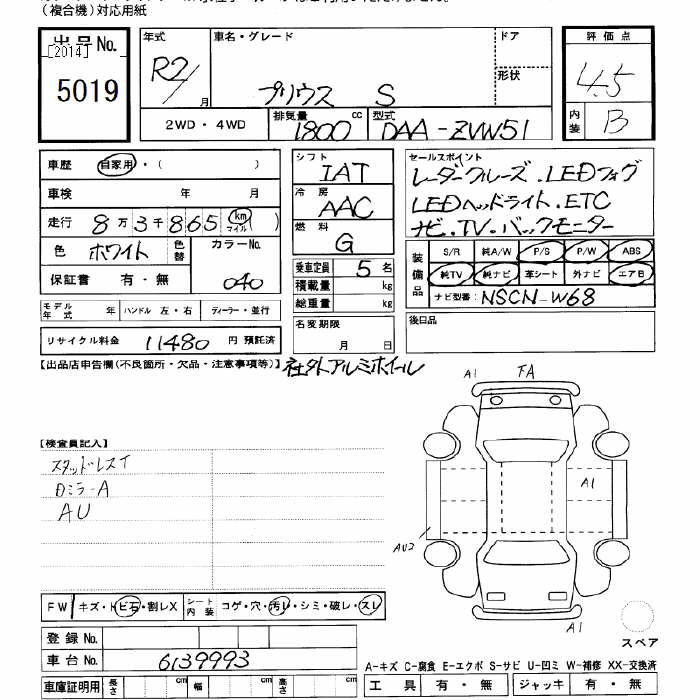 （複合機）対応用紙
出品No.
[2014]
5019
年式 R2/ 月
車名・グレード プリウス S
ドア
形状
2WD・4WD
排気量 1800 cc
型式 DAA-ZVW51
評価点 4.5
内装 B
車歴 自家用・( )
車検 年 月
走行 8万3千865 km マイル ( )
色 ホワイト 色替
カラーNo. 040
保証書 有・無
モデル年式 年 ハンドル 左・右 ディーラー・並行
リサイクル料金 11480 円 預託済
シフト IAT
冷房 AAC
燃料 G
乗車定員 5 名
積載量 kg
総重量 kg
名変期限 月 日
セールスポイント
レーダークルーズ.LEDフォグ
LEDヘッドライト.ETC
ナビ.TV.バックモニター
装備品 S/R 純A/W P/S P/W ABS
純TV 純ナビ 革シート 外ナビ エアB
ナビ型番: NSCN-W68
後日品
【出品店申告欄(不良箇所・欠品・注意事項等)】 社外アルミホイール
【検査員記入】
スタッドレスイ
DミラーA
AU
A1 FA
A1
AU2
A1
スペア
FW キズ・ト ビ石・割レX シート内装 コゲ・穴・汚レ・シミ・破レ・スレ
登録No.
車台No. 6139993
車庫証明用 長さ cm 幅 cm 高さ cm
A-キズ C-腐食 E-エクボ S-サビ U-凹ミ W-補修 XX-交換済
工具 有・無 ジャッキ 有・無